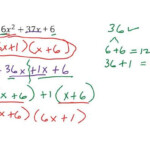 6x² + 37x + 6
6x + 1)(x + 6)
36x + 1x + 6
x + 6) + 1(x + 6)
x + 6)(6x + 1)
36 ✓
6 + 6 = 12
36 + 1 =